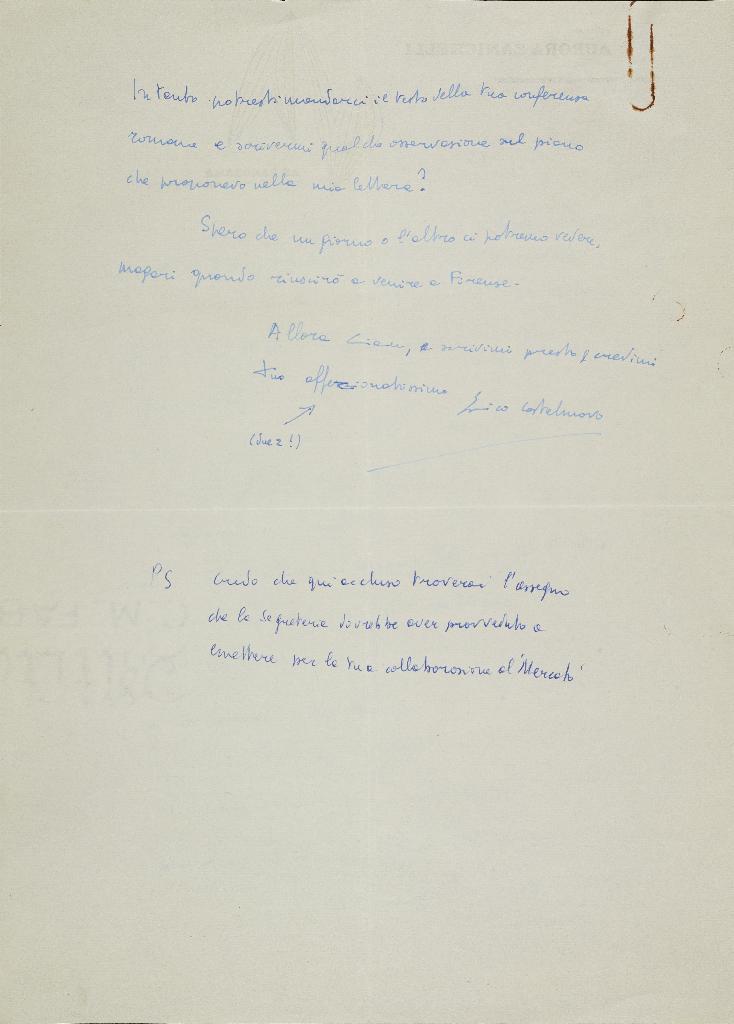 Intanto potresti mandarci il testo della tua conferenza
romana e scrivermi qualche osservazione sul piano
che proponevo nella mia lettera?
Spero che un giorno o l'altro ci potremo vedere,
magari quando riuscirò a venire a Firenze.
Allora ciao, e scrivimi presto, credimi
tuo affezionatissimo
Enrico Castelnuovo
(due z!)
PS credo che qui accluso troverai l'assegno
che la Segreteria dovrebbe aver provveduto a
emettere per la tua collaborazione al "Mercato"